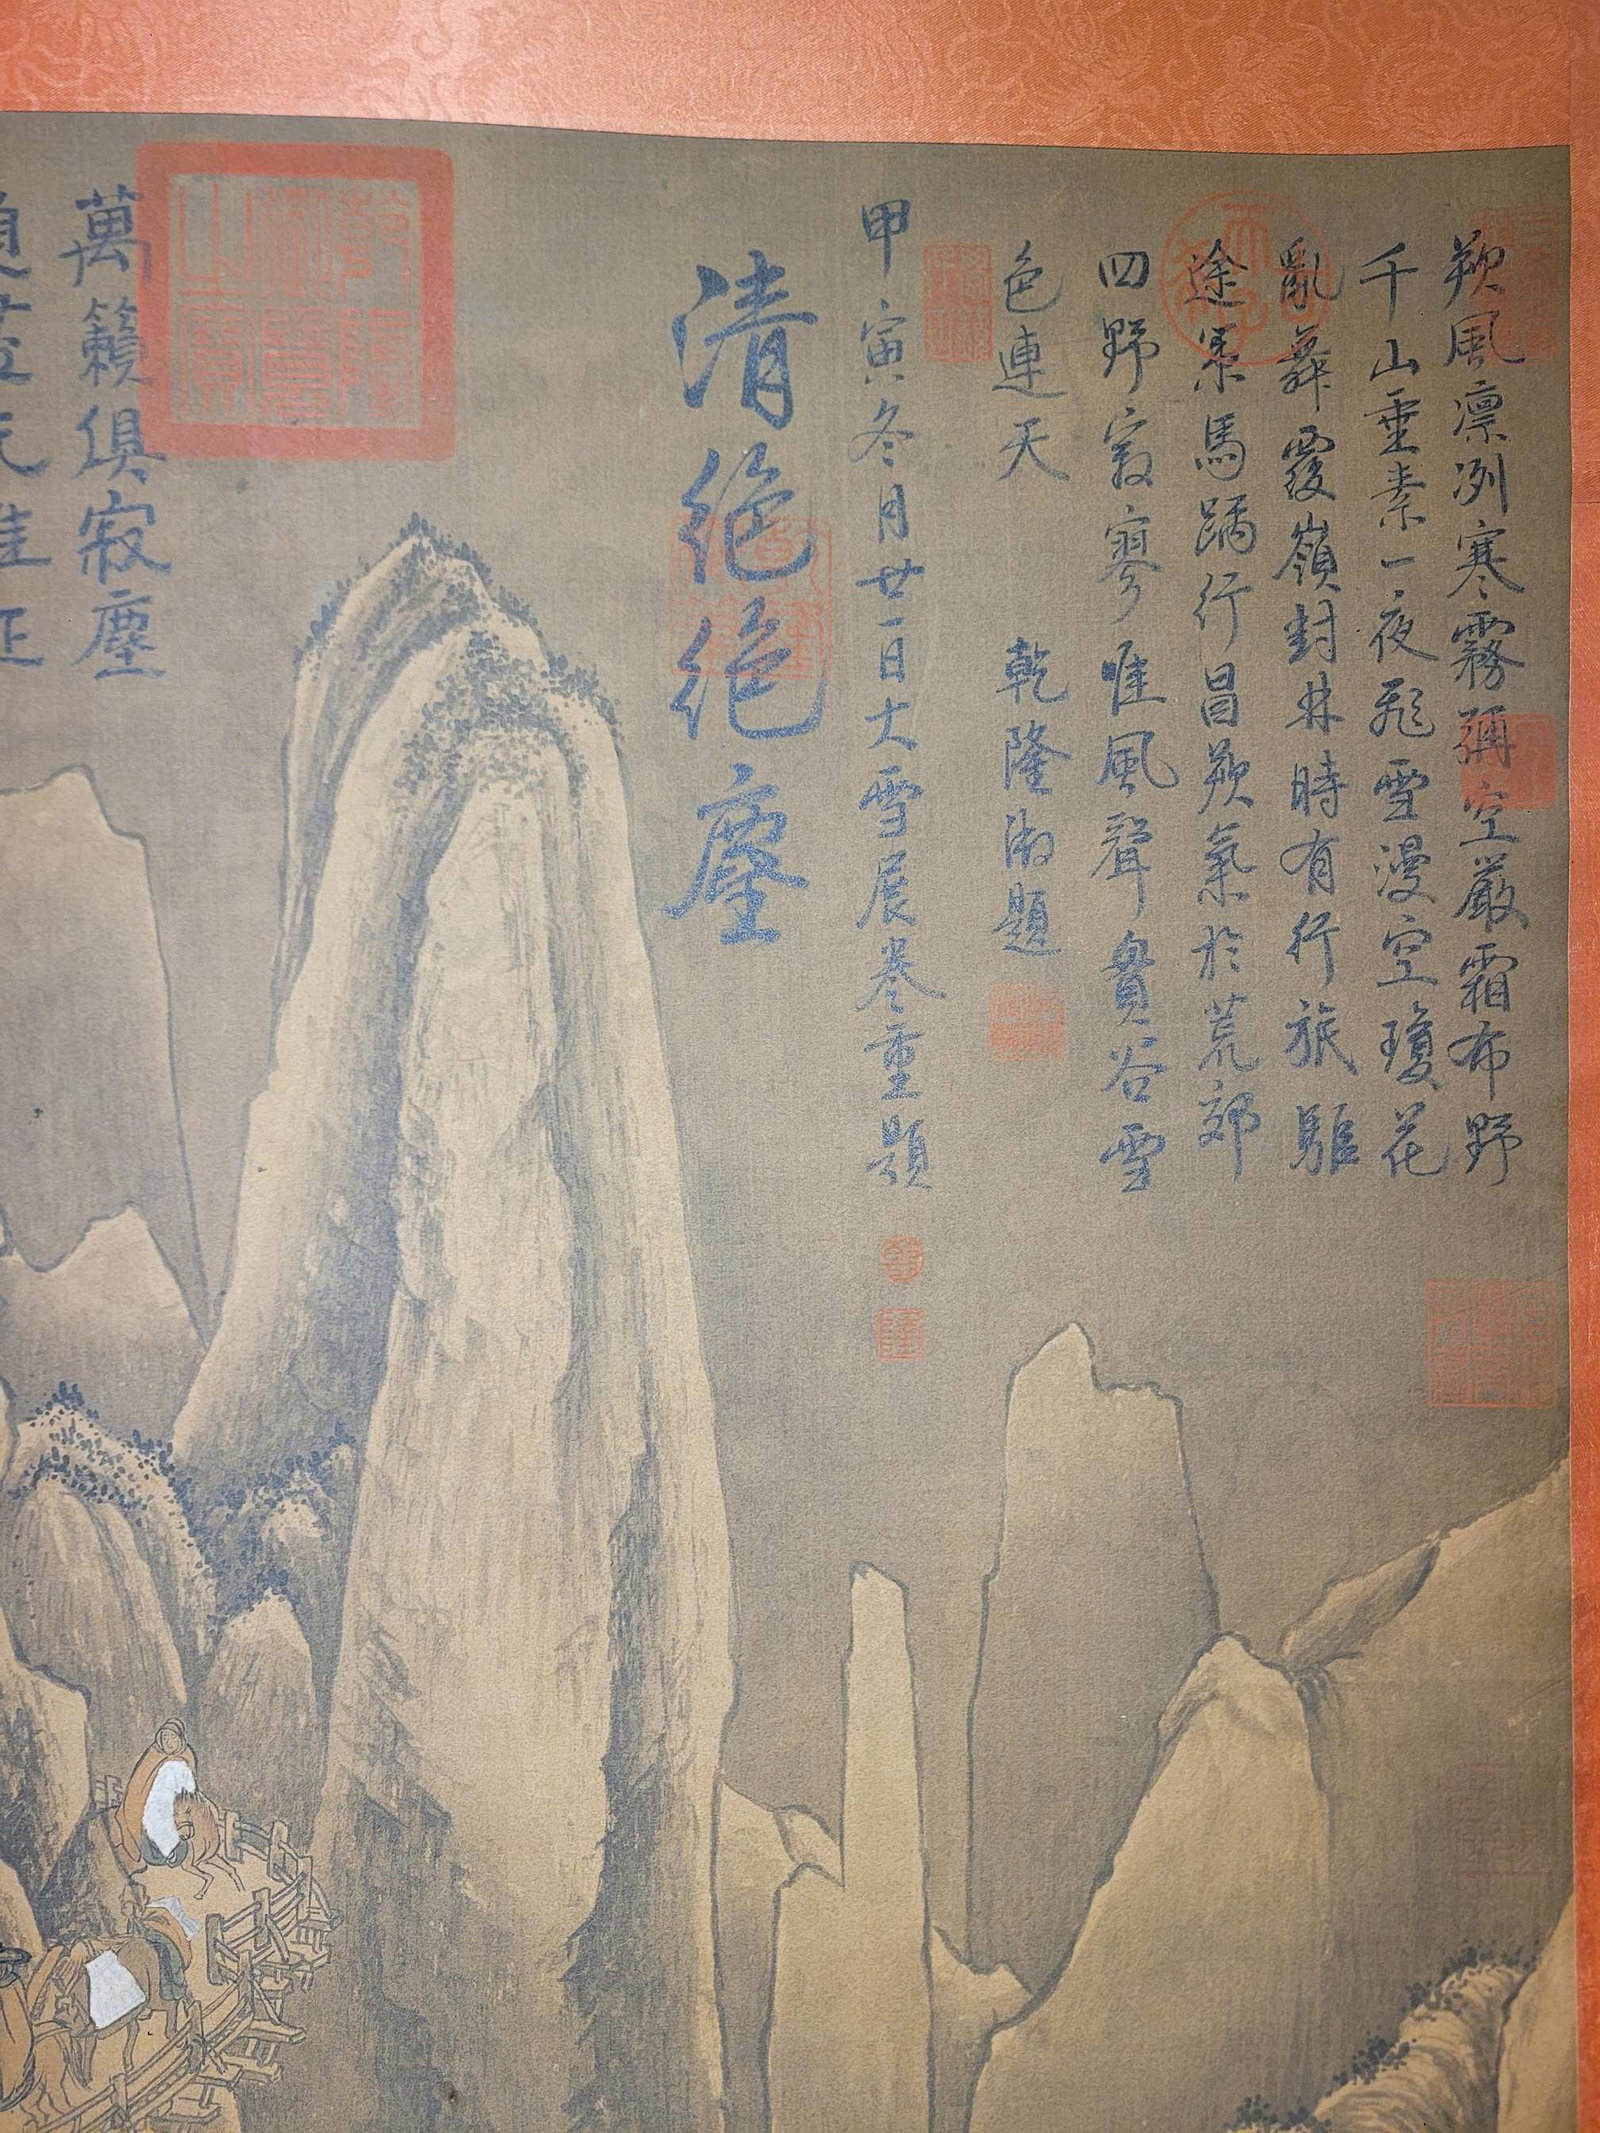 朔風凛冽寒霧彌空嚴霜布野
千山垂素一夜飛雪漫空瓊花
亂舞覆嶺封林時有行旅驅
途策馬蹄行冒朔氣於荒郊
四野寂寥惟風聲貫谷雪
色連天
乾隆御題
甲寅冬月廿一日大雪展卷重題
清絕絕塵
乾
隆
萬籟俱寂塵